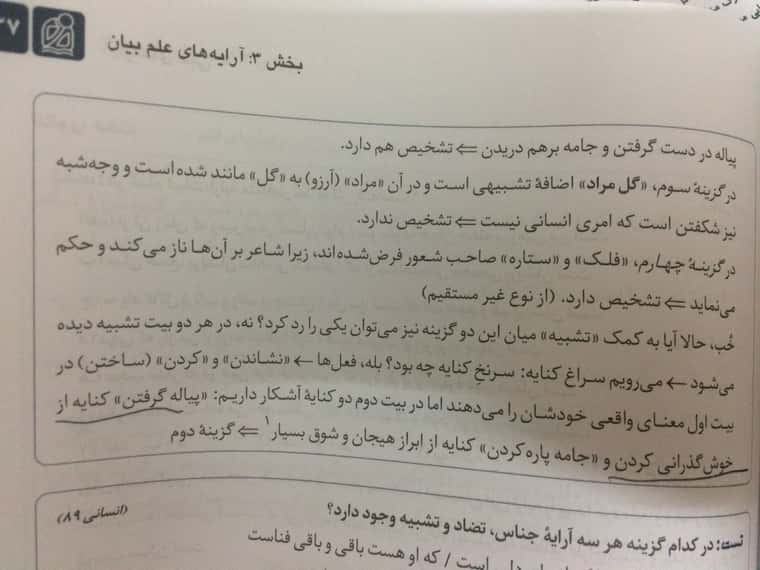 ۳۷
بخش ۳: آرایه‌های علم بیان
پیاله در دست گرفتن و جامه برهم دریدن ⇐ تشخیص هم دارد.
در گزینهٔ سوم، «گل مراد» اضافهٔ تشبیهی است و در آن «مراد» (آرزو) به «گل» مانند شده است و وجه‌شبه
نیز شکفتن است که امری انسانی نیست ⇐ تشخیص ندارد.
در گزینهٔ چهارم، «فلک» و «ستاره» صاحب شعور فرض شده‌اند، زیرا شاعر بر آن‌ها ناز می‌کند و حکم
می‌نماید ⇐ تشخیص دارد. (از نوع غیر مستقیم)
خُب، حالا آیا به کمک «تشبیه» میان این دو گزینه نیز می‌توان یکی را رد کرد؟ نه، در هر دو بیت تشبیه دیده
می‌شود ← می‌رویم سراغ کنایه: سرنخِ کنایه چه بود؟ بله، فعل‌ها ← «نشاندن» و «کردن» (ساختن) در
بیت اول معنای واقعی خودشان را می‌دهند اما در بیت دوم دو کنایهٔ آشکار داریم: «پیاله گرفتن» کنایه از
خوش‌گذرانی کردن و «جامه پاره‌کردن» کنایه از ابراز هیجان و شوق بسیار۱ ⇐ گزینهٔ دوم
تست: در کدام گزینه هر سه آرایهٔ جناس، تضاد و تشبیه وجود دارد؟ (انسانی ۸۹)
است / که او هست باقی و باقی فناست